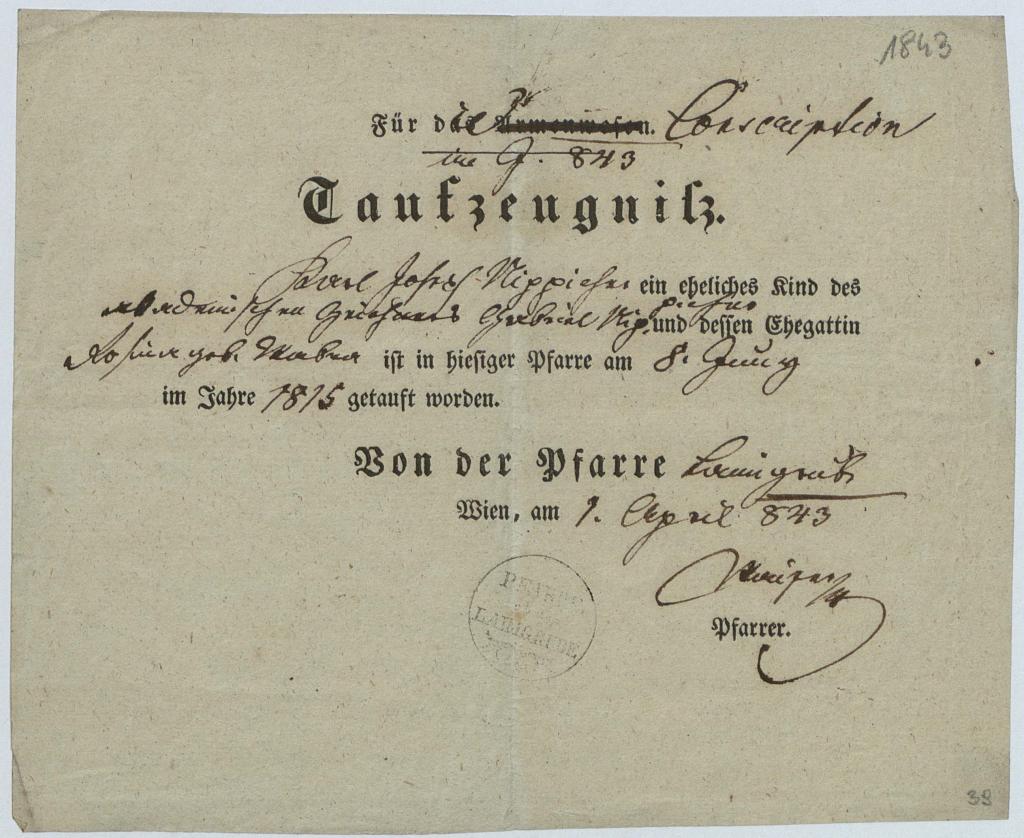 1843
Für die Armenwesen. Conscription
im J. 843
Taufzeugniß.
Karl Joseph Nippicher ein eheliches Kind des
akademischen Gabriel Nippicher und dessen Ehegattin
Rosina geb. ist in hiesiger Pfarre am 8. Juny
im Jahre 1815 getauft worden.
Von der Pfarre Laimgrub
Wien, am 1. April 843
Pfarrer.
LAIMGRUBE
39